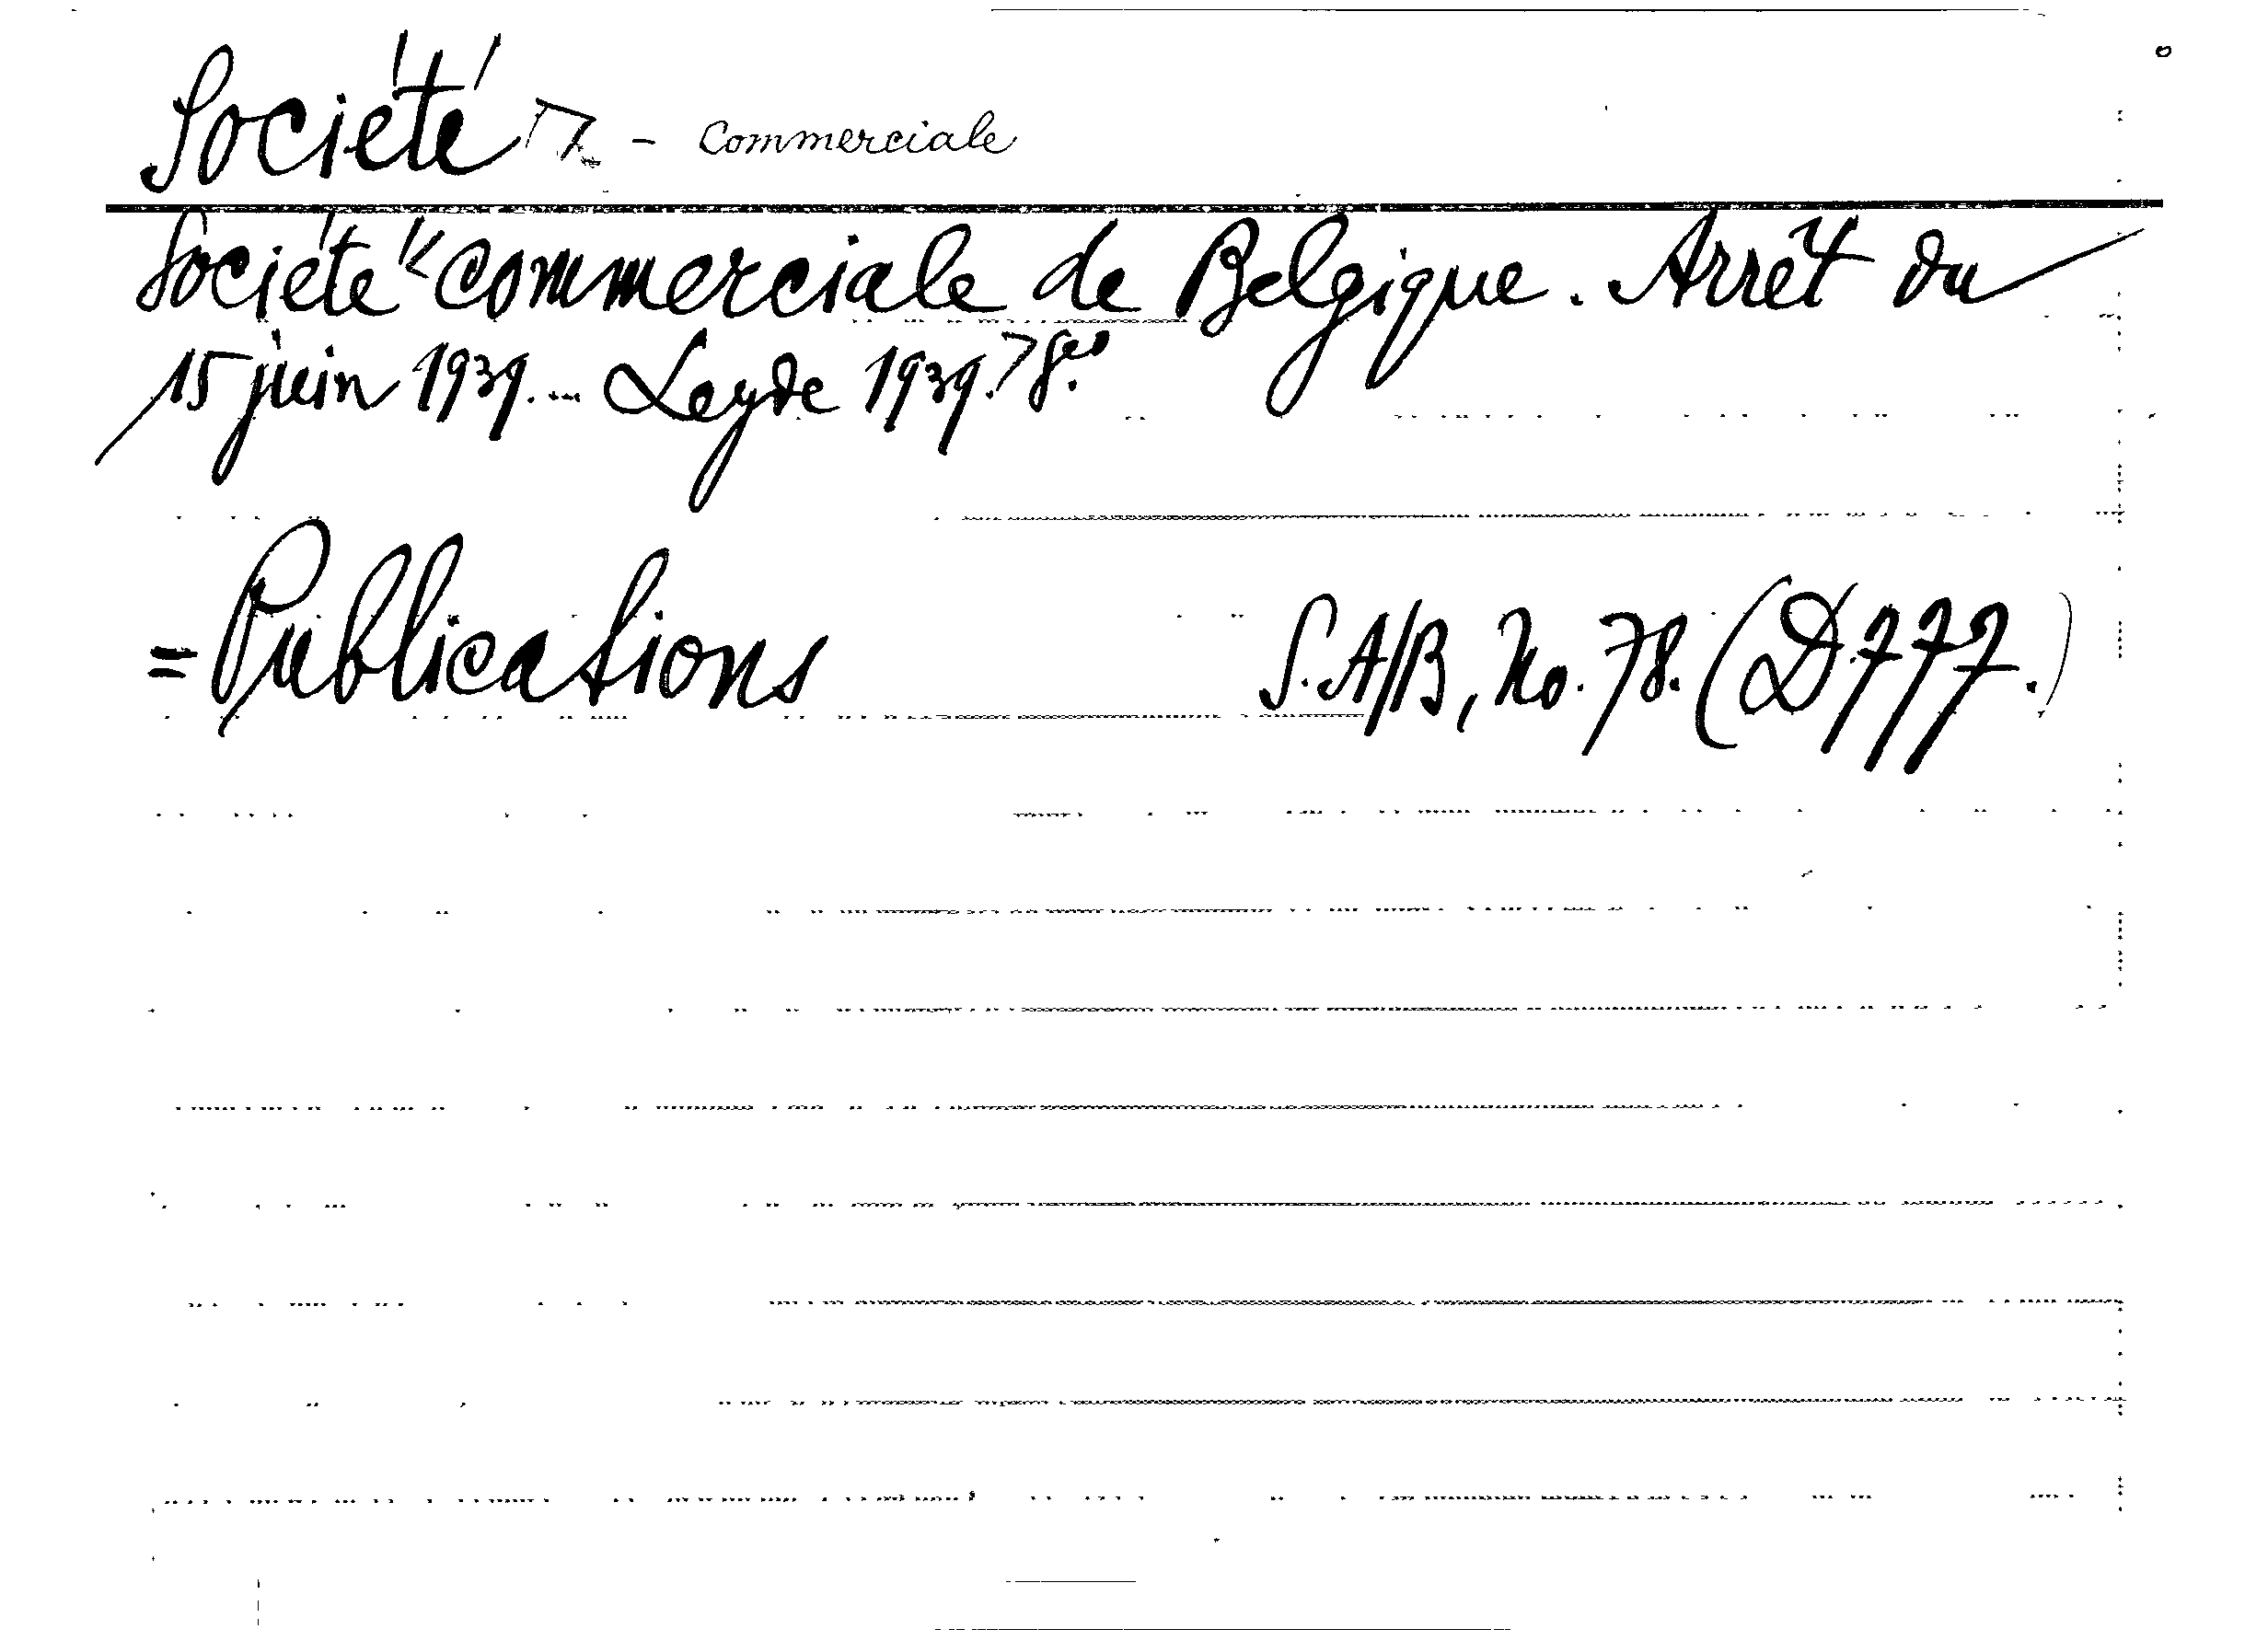 Société - Commerciale
Société commerciale de Belgique. Arrêt du
15 juin 1939.... Leyde 1939.
= Publications S. A/B, No. 78. (D.777.)